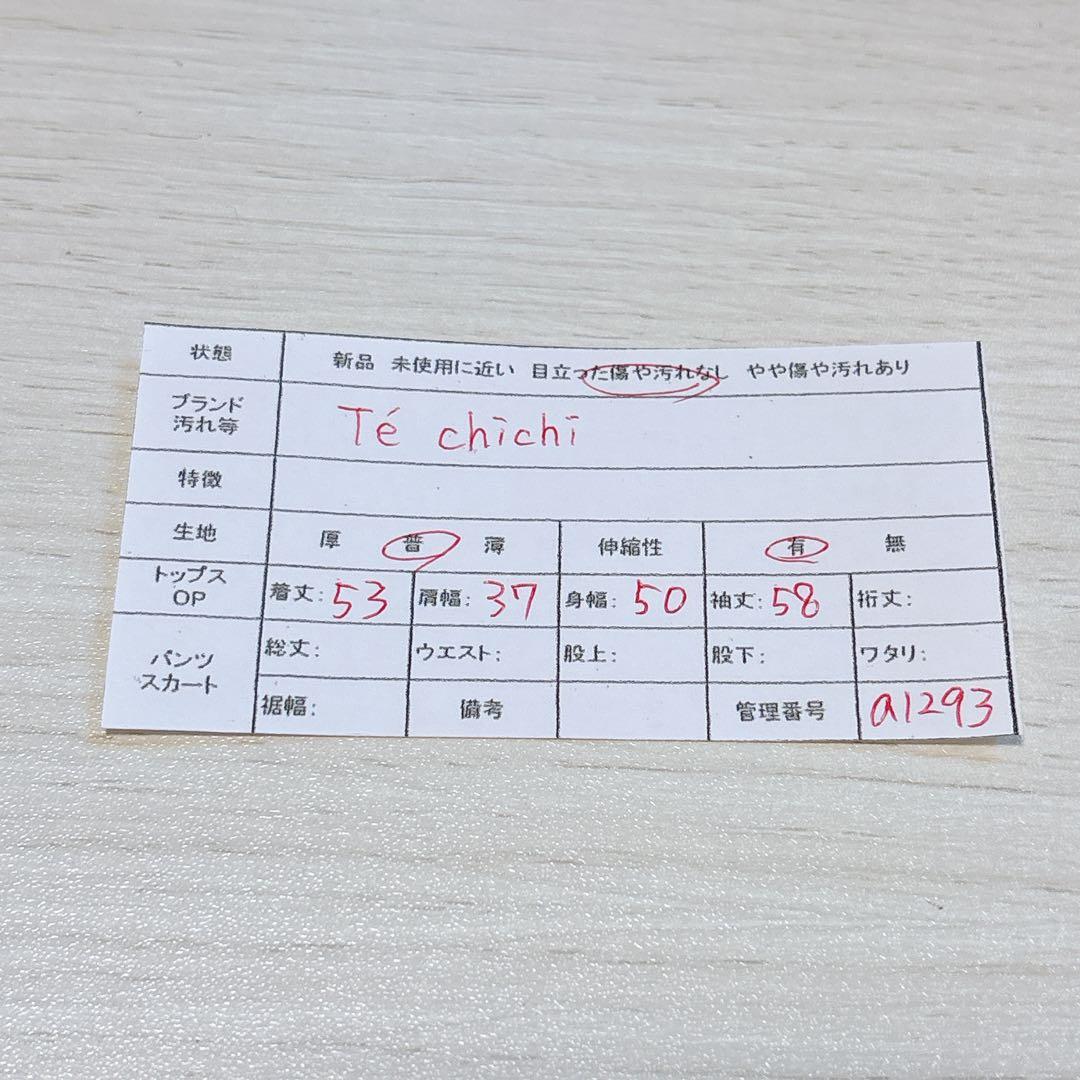 状態 新品 未使用に近い 目立った傷や汚れなし やや傷や汚れあり
ブランド
汚れ等
Té chichi
特徴
生地 厚 普 薄 伸縮性 有 無
トップス
OP
着丈:53 肩幅:37 身幅:50 袖丈:58 裄丈:
パンツ
スカート
総丈: ウエスト: 股上: 股下: ワタリ:
裾幅: 備考 管理番号 a1293